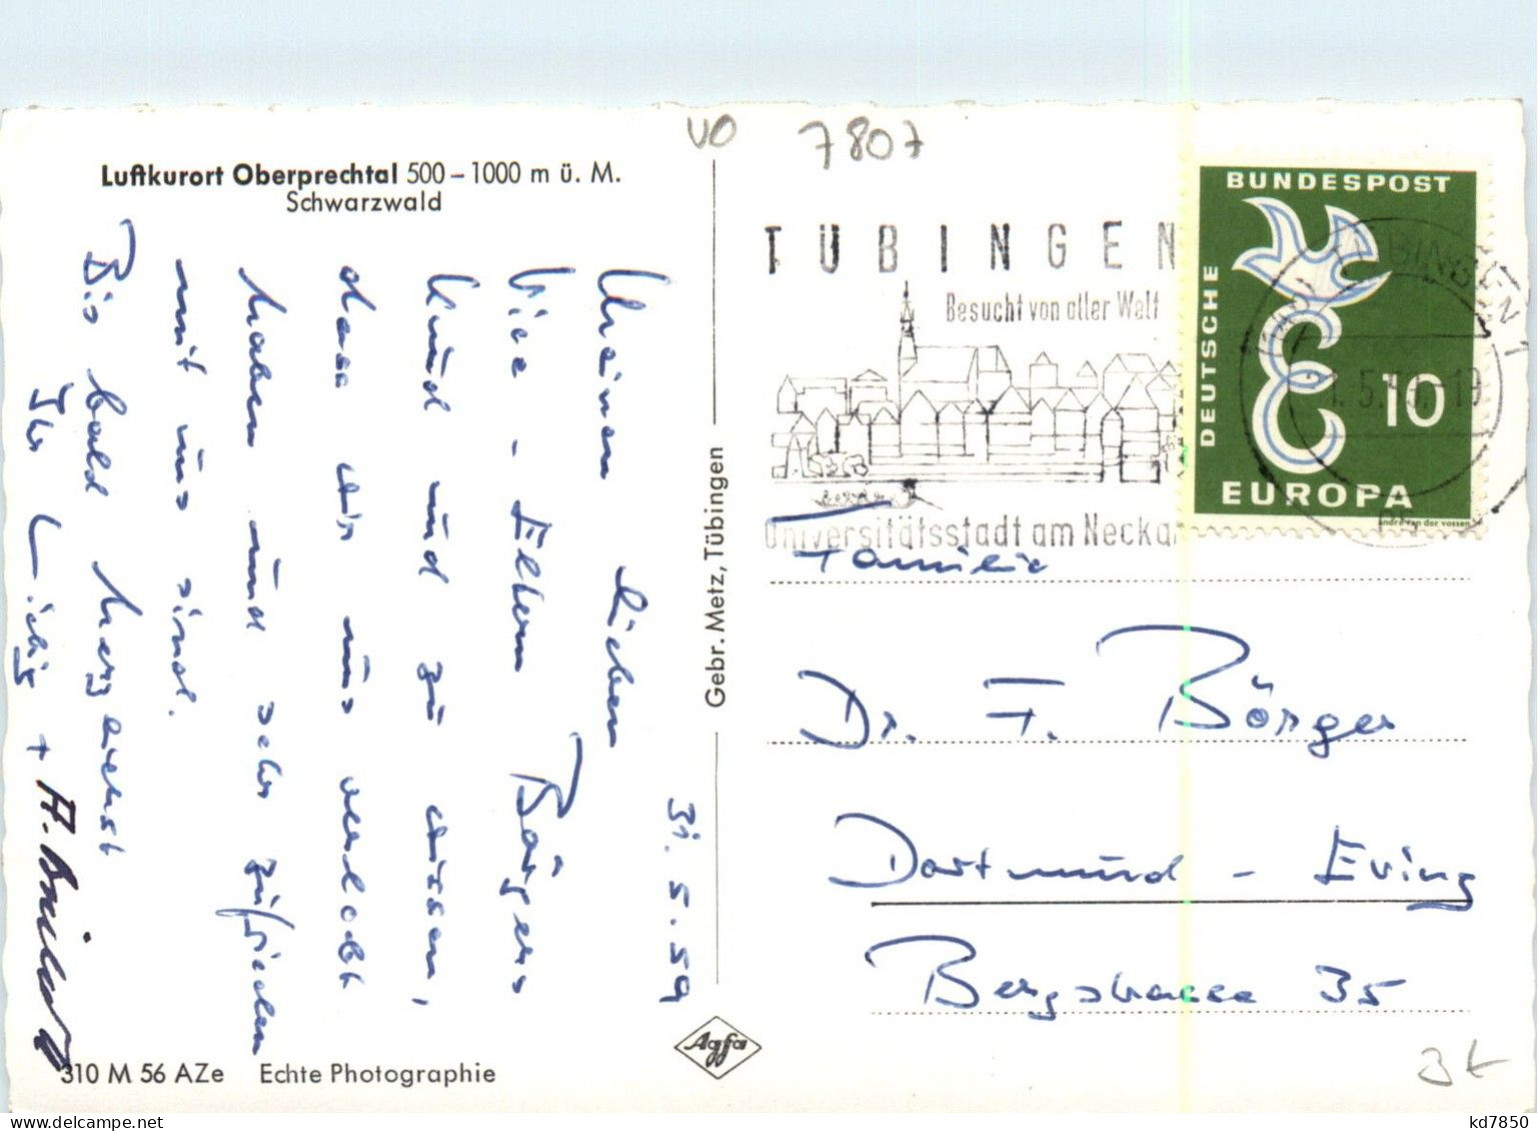 VO
7807
Luftkurort Oberprechtal 500 – 1000 m ü. M.
Schwarzwald
31. 5. 59
Meinen lieben
Vice - Eltern Börgers
Kund und zu wissen,
dass wir uns verlobt
haben und sehr zufrieden
mit uns sind.
Bis bald herzlichst
Ihr +
310 M 56 AZe Echte Photographie
Gebr. Metz, Tübingen
Agfa
TÜBINGEN
Besucht von aller Welt
Universitätsstadt am Neckar
TÜBINGEN 1
BUNDESPOST
DEUTSCHE
10
EUROPA
andré van der vossen
Familie
Dr. F. Börger
Dortmund - Eving
Bergstrasse 35
kd7850